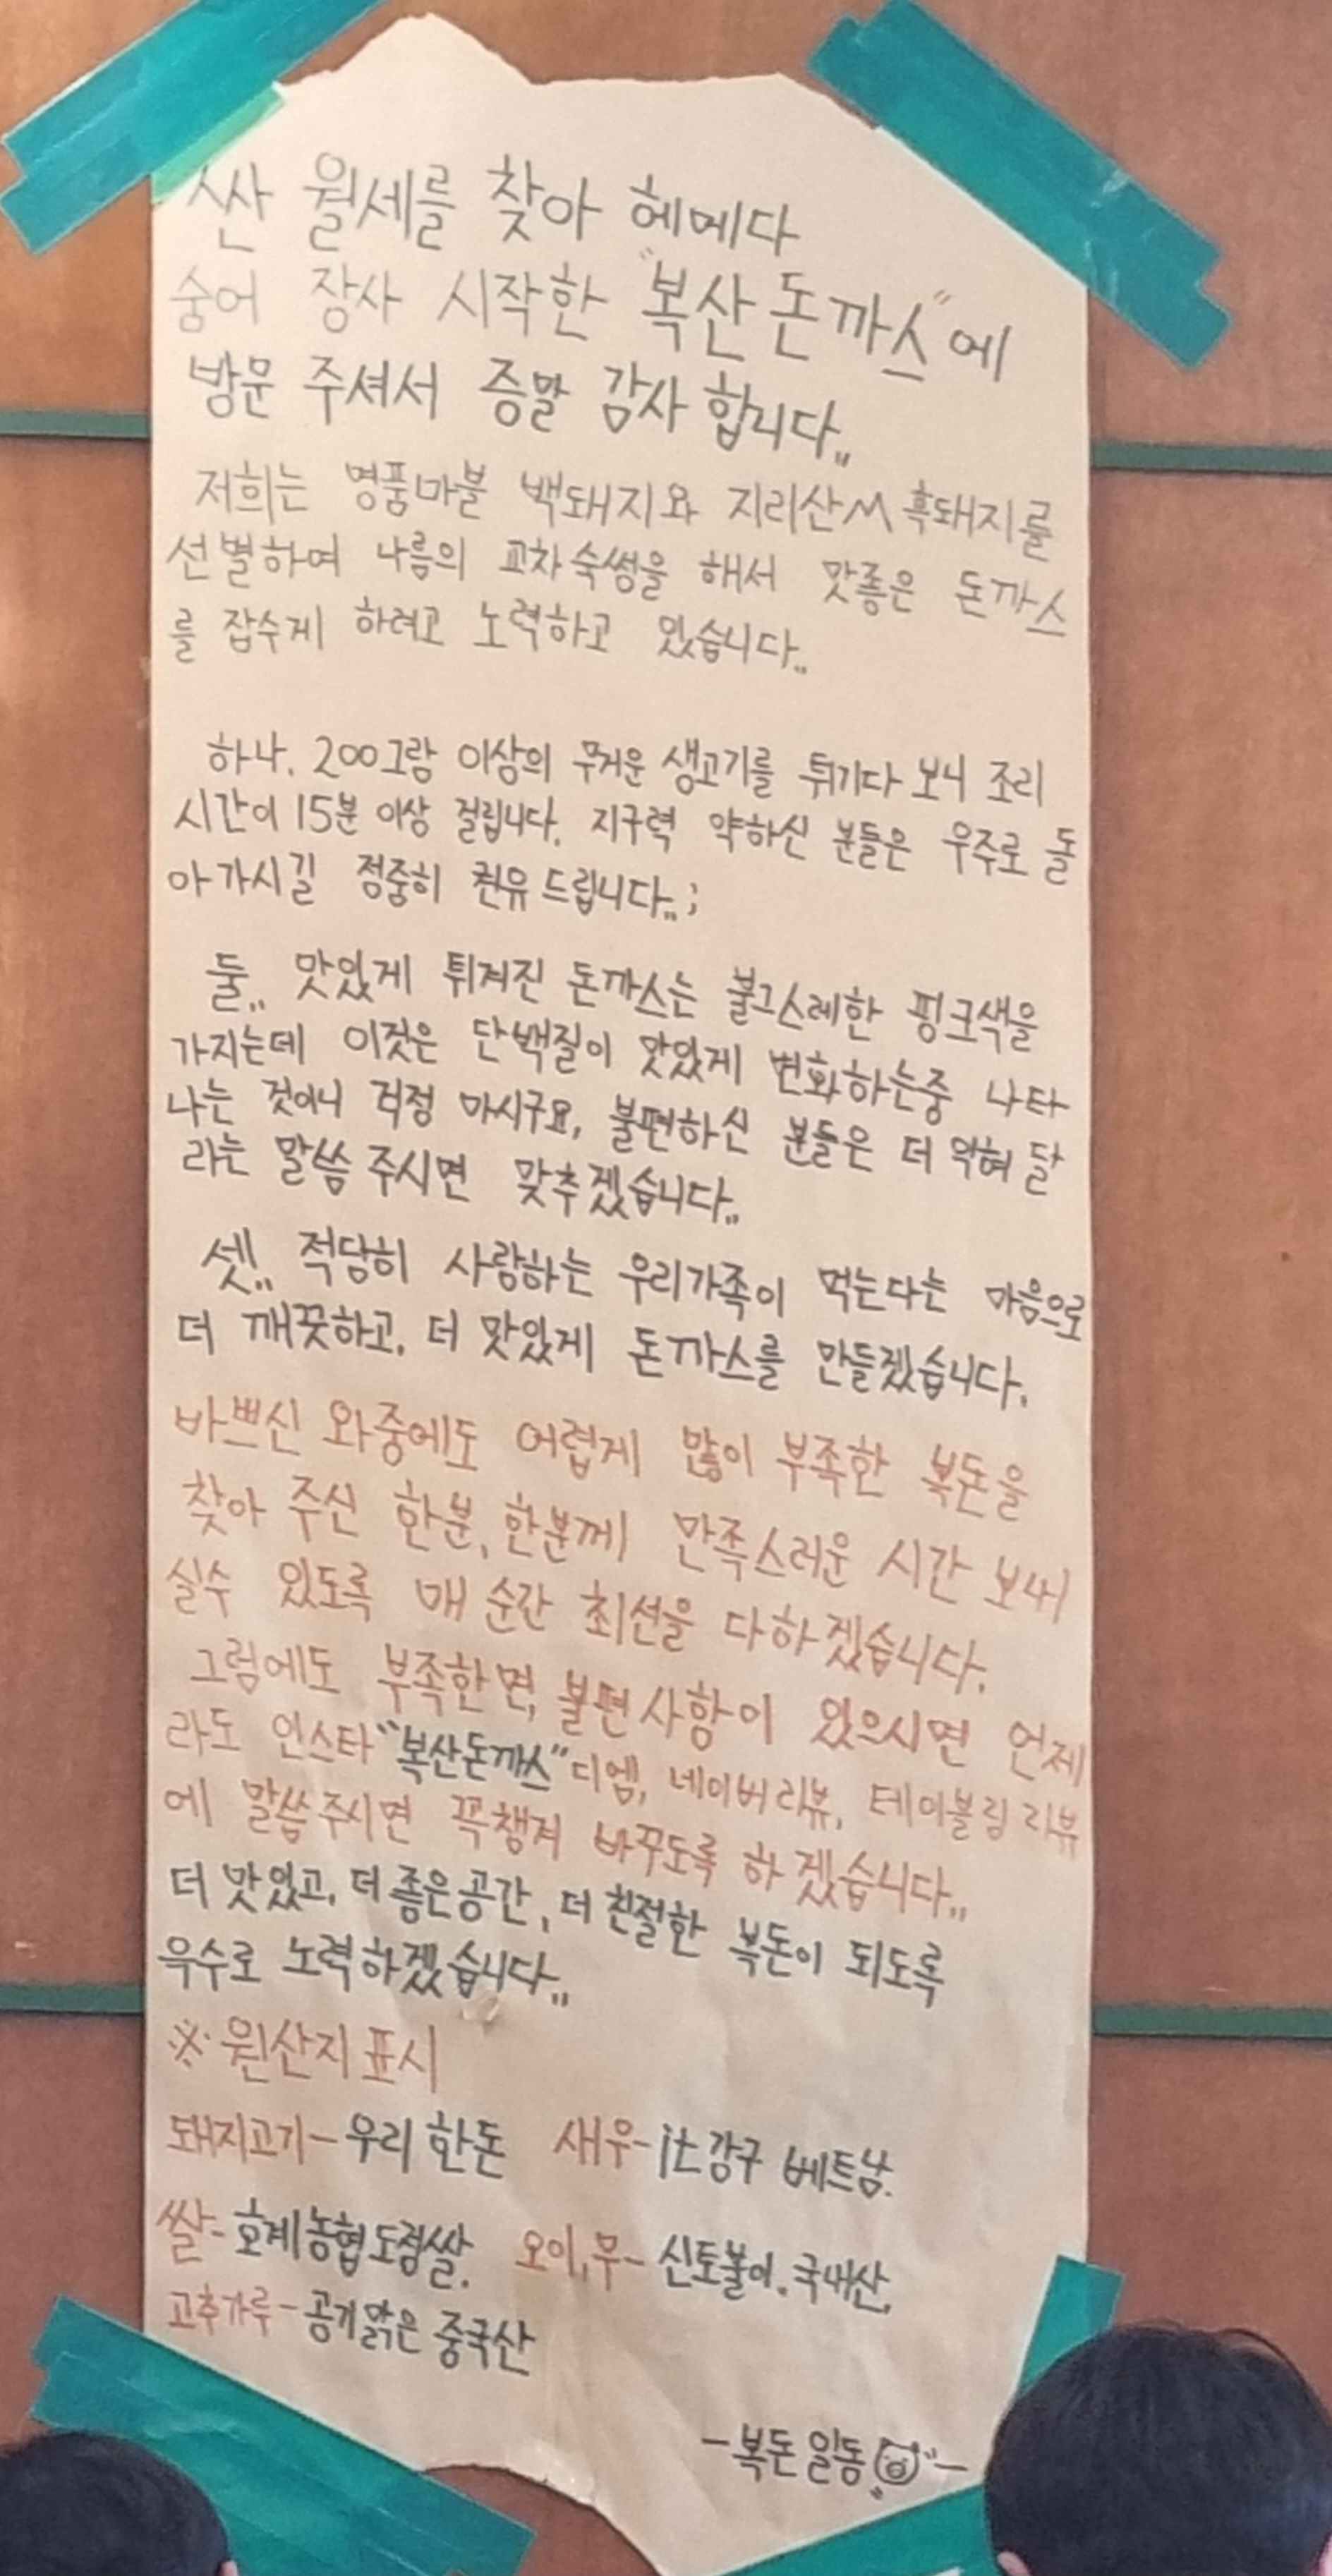 싼 월세를 찾아 헤메다
숨어 장사 시작한 "복산돈까스"에
방문 주셔서 증말 감사합니다,,
저희는 명품마블 백돼지와 지리산 흑돼지를
선별하여 나름의 교차숙썽을 해서 맛죻은 돈까스
를 잡수게 하려고 노력하고 있습니다,,
하나. 200그람 이상의 무거운 생고기를 튀기다 보니 조리
시간이 15분 이상 걸립니다. 지구력 약하신 분들은 우주로 돌
아가시길 정중히 권유 드립니다,,;
둘,, 맛있게 튀겨진 돈까스는 불그스레한 핑크색을
가지는데 이것은 단백질이 맛있게 변화하는중 나타
나는 것이니 걱정 마시구요, 불편하신 분들은 더 익혀 달
라는 말씀 주시면 맞추겠습니다,,
셋,, 적당히 사랑하는 우리가족이 먹는다는 마음으로
더 깨끗하고, 더 맛있게 돈까스를 만들겠습니다.
바쁘신 와중에도 어렵게 많이 부족한 복돈을
찾아 주신 한분, 한분께 만족스러운 시간 보내
실수 있도록 매 순간 최선을 다하겠습니다.
그럼에도 부족한면, 불편사항이 있으시면 언제
라도 인스타 "복산돈까스" 디엠, 네이버리뷰, 테이블링 리뷰
에 말씀주시면 꼭챙겨 바꾸도록 하겠습니다,,
더 맛있고, 더 죻은공간, 더 친절한 복돈이 되도록
윽수로 노력하겠습니다,,
※ 원산지 표시
돼지고기-우리 한돈 새우-it 강구 베트남.
쌀-호계농협도정쌀. 오이,무-신토불이.국내산.
고추가루-공기맑은 중국산
-복돈 일동-